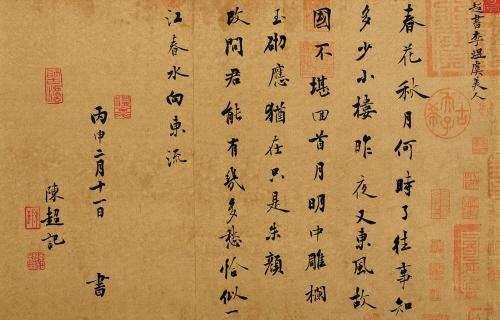 超書李煜虞美人
春花秋月何時了往事知
多少小樓昨夜又東風故
國不堪回首月明中雕欄
玉砌應猶在只是朱顏
改問君能有幾多愁恰似一
江春水向東流
丙申二月十一日 書
陳超記
古希天子